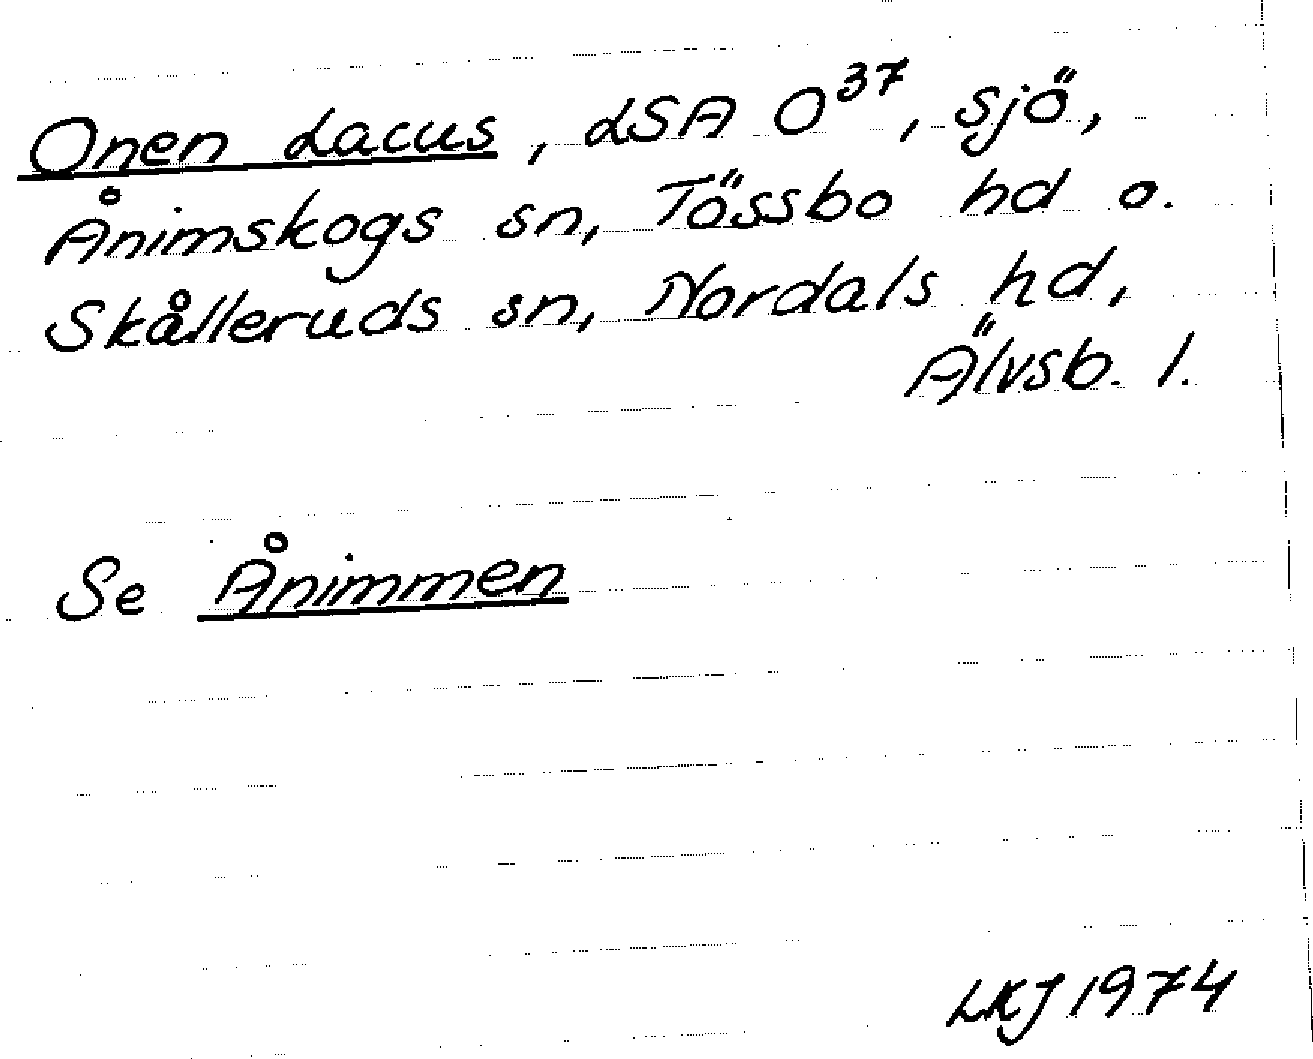 Onen Lacus, LSA O³⁷, sjö,
Ånimskogs sn, Tössbo hd o.
Skålleruds sn, Nordals hd,
Älvsb. l.
Se Ånimmen
LKJ 1974